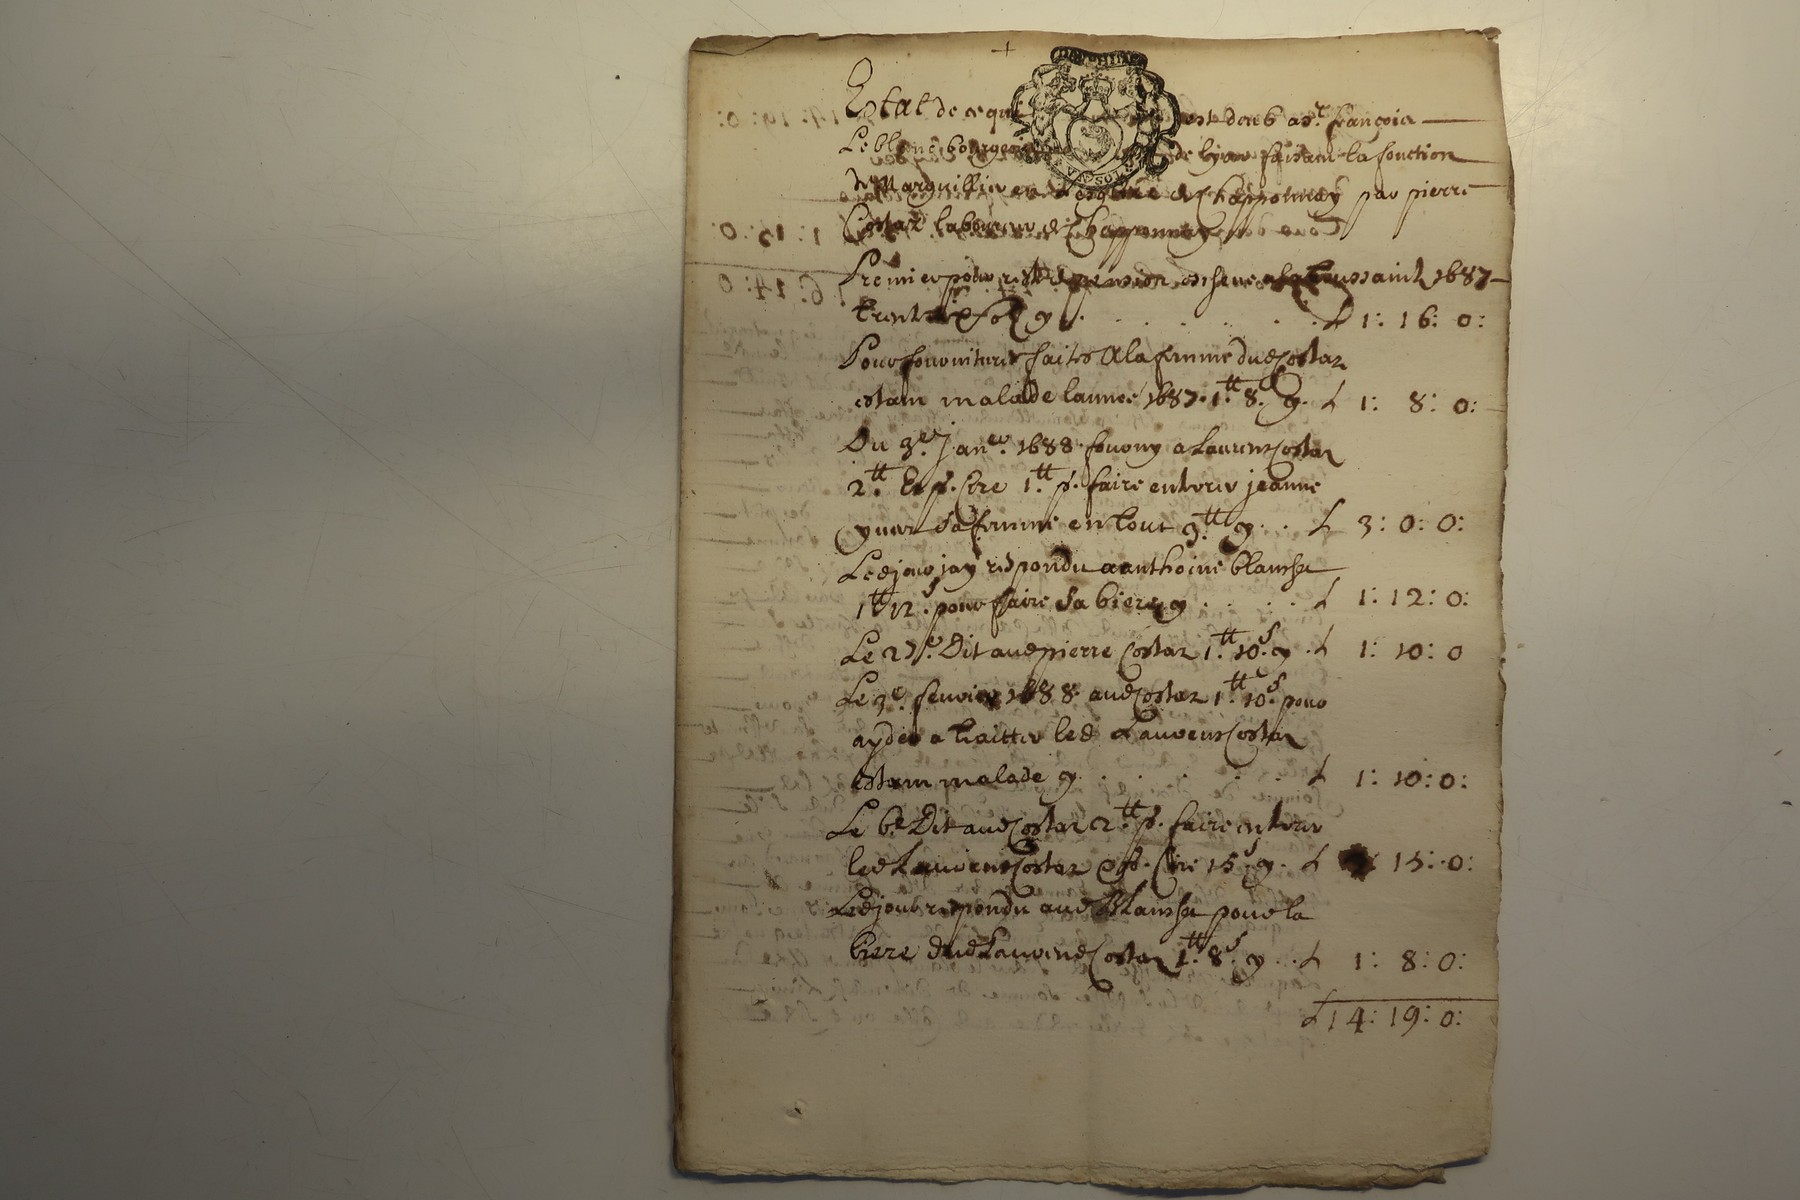 DAUPHINE
Estat de ce qui est deub a sr. françois
Leblanc bourgeois de lyon faisant la fonction
de Marguillier en l'esglise de Chapponnay par pierre
Costaz laboureur de Chapponnay
Premier pour reste de pension escheue a la toussaint 1687
trente six sol cy . . . . £ 1: 16: 0:
Pour fourniture faites a la femme dud Costaz
estant malade lannée 1687. 1.tt 8.s cy. £ 1: 8: 0:
Du 3e. Janer. 1688 fourny a Laurens Costaz
2.tt Et p. Cire 1.tt p. faire enterer jeanne
sa femme en tout 3.tt cy . . £ 3: 0: 0:
Led jour jay respondu a anthoine blanchet
1tt 12.s pour faire sa biere cy . . . . £ 1: 12: 0:
Le 27e. Dit aud pierre Costaz 1.tt 10.s cy . £ 1: 10: 0
Le 3e. feuvrier 1688. aud Costaz 1.tt 10.s pour
ayder a traitter led Laurens Costaz
estant malade cy . . . . . £ 1: 10: 0:
Le 6e Dit aud Costaz 2.tt p. faire enterer
led Laurens Costaz et p. Cire 15.s cy. £ 15: 0:
Led jour respondu aud Blanchet pour la
biere dud Laurens Costaz 1.tt 8.s cy . . £ 1: 8: 0:
£ 14: 19: 0: